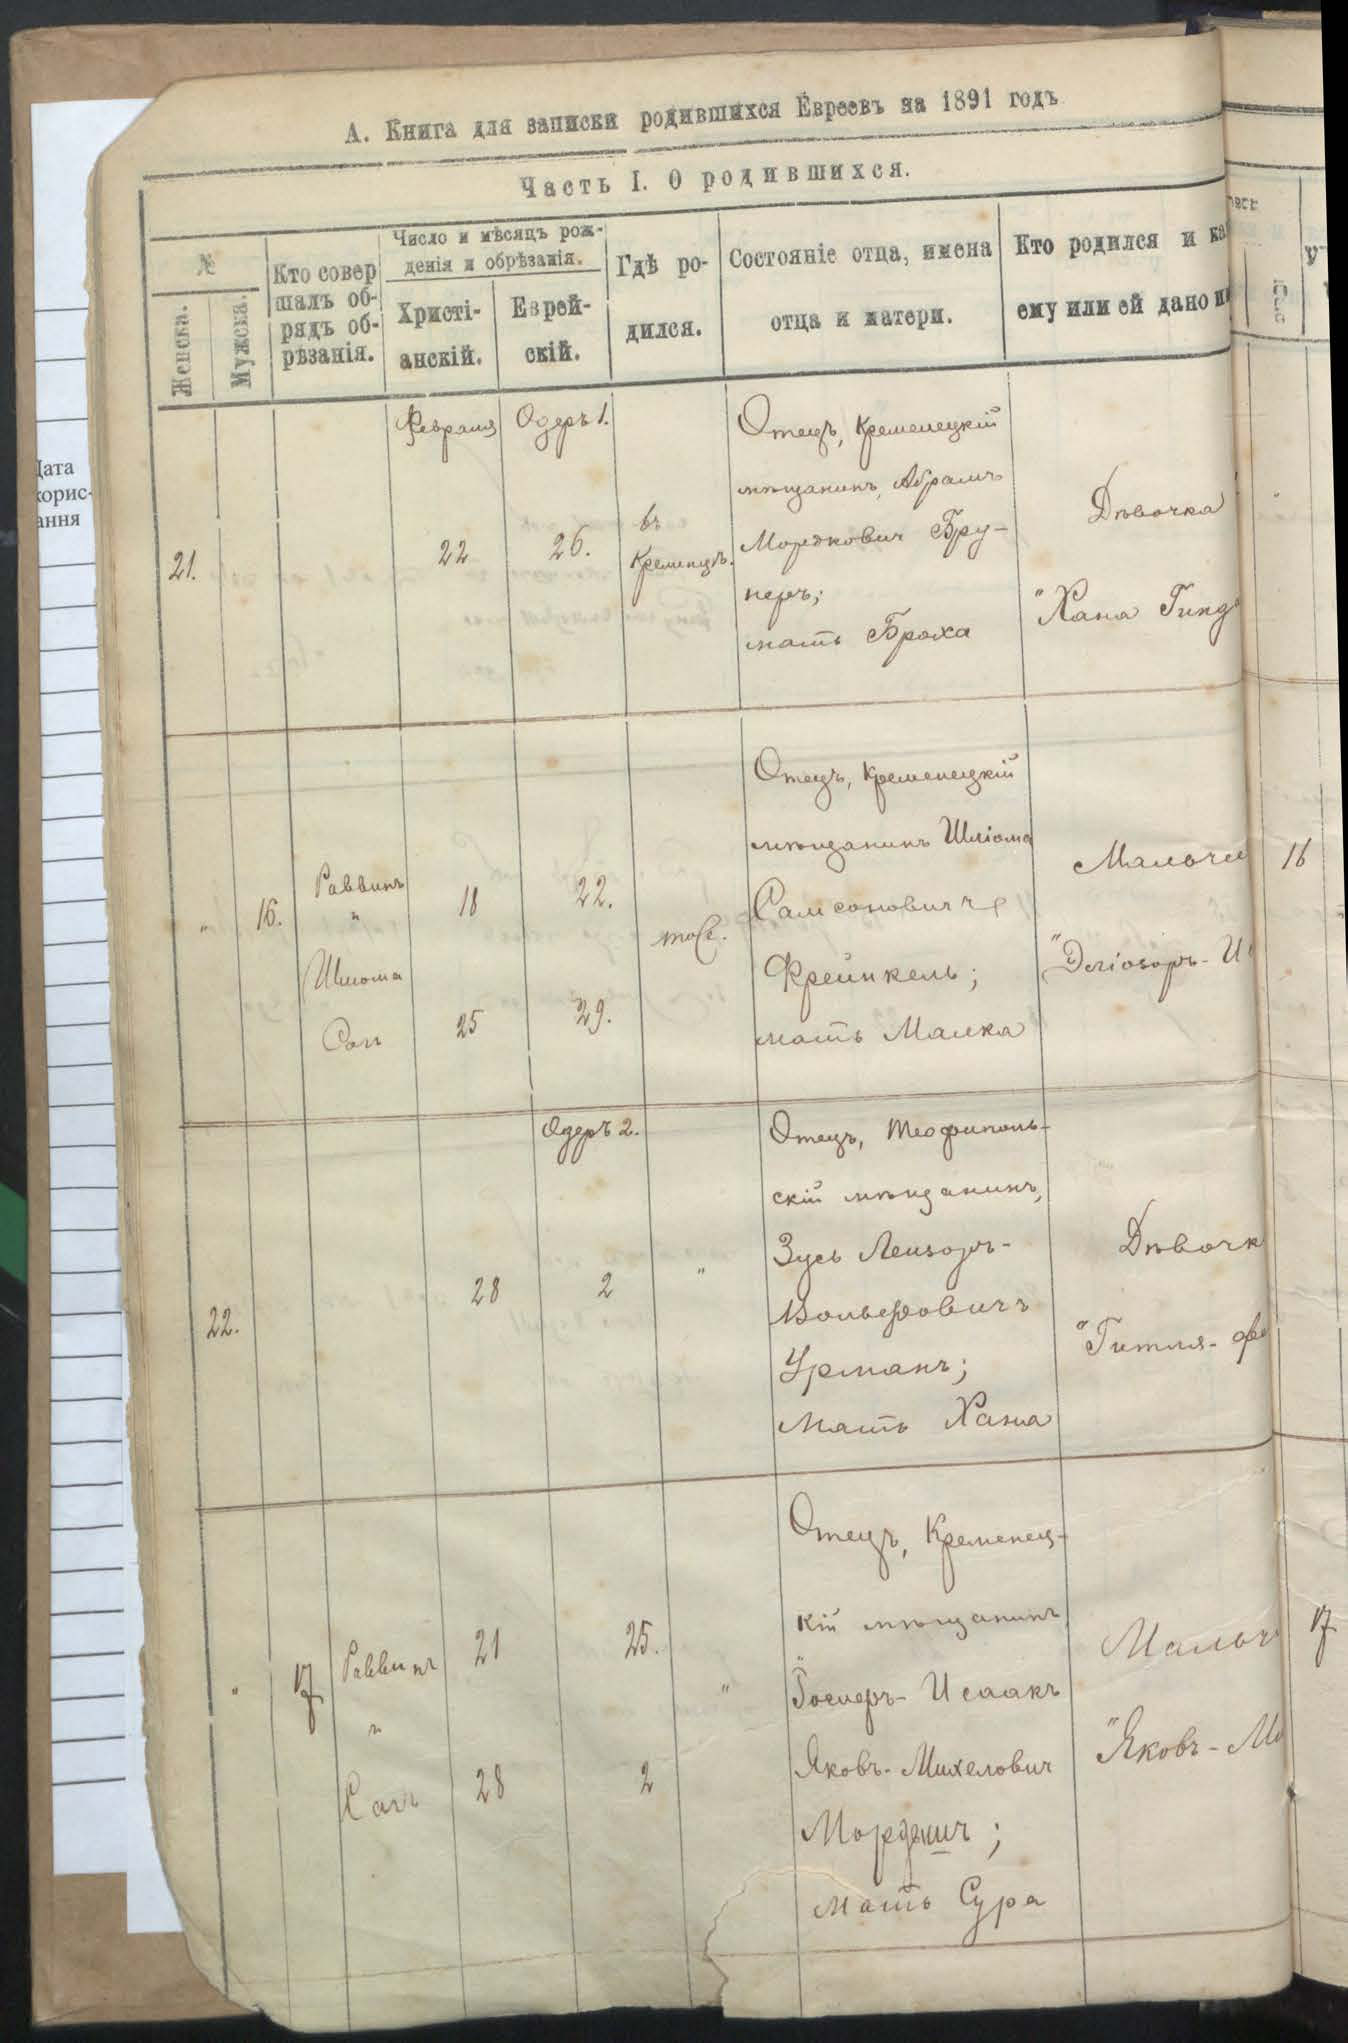 А. Книга для записки родившихся Евреевъ на 1891 годъ
Часть I. О родившихся.
№
Женска.
Мужска.
Кто совер
шалъ об-
рядъ об-
рѣзанія.
Число и мѣсяцъ рож-
денія и обрѣзанія.
Христі-
анскій.
Еврей-
скій.
Гдѣ ро-
дился.
Состояніе отца, имена
отца и матери.
Кто родился и ка
ему или ей дано и
Дата
корис-
ання
Февраля
Одеръ 1.
21.
22
26.
въ
Кременцѣ.
Отецъ, Кременецкій
мѣщанинъ, Абрамъ
Мордковичъ Бру-
неръ;
мать Броха
Дѣвочка
"Хана Гинд
"
16.
Раввинъ
"
Шлiома
18
22.
25
29.
тоже.
Отецъ, Кременецкій
мѣщанинъ Шліома
Самсоновичъ
Френкель;
мать Малка
Мальчи
"Эліозоръ-И
16
22.
Одеръ 2.
28
2
"
Отецъ, Теофиполь-
скій мѣщанинъ,
Зусь Лейзоръ-
Вольфовичъ
Урманъ;
Мать Хана
Дѣвочк
"Гитля-
"
17
Раввинъ
"
21
25.
28
2
"
Отецъ, Кременец-
кій мѣщанинъ
Исаакъ
Яковъ-Михелович
мать Сура
Мальч
"Яковъ-М
17